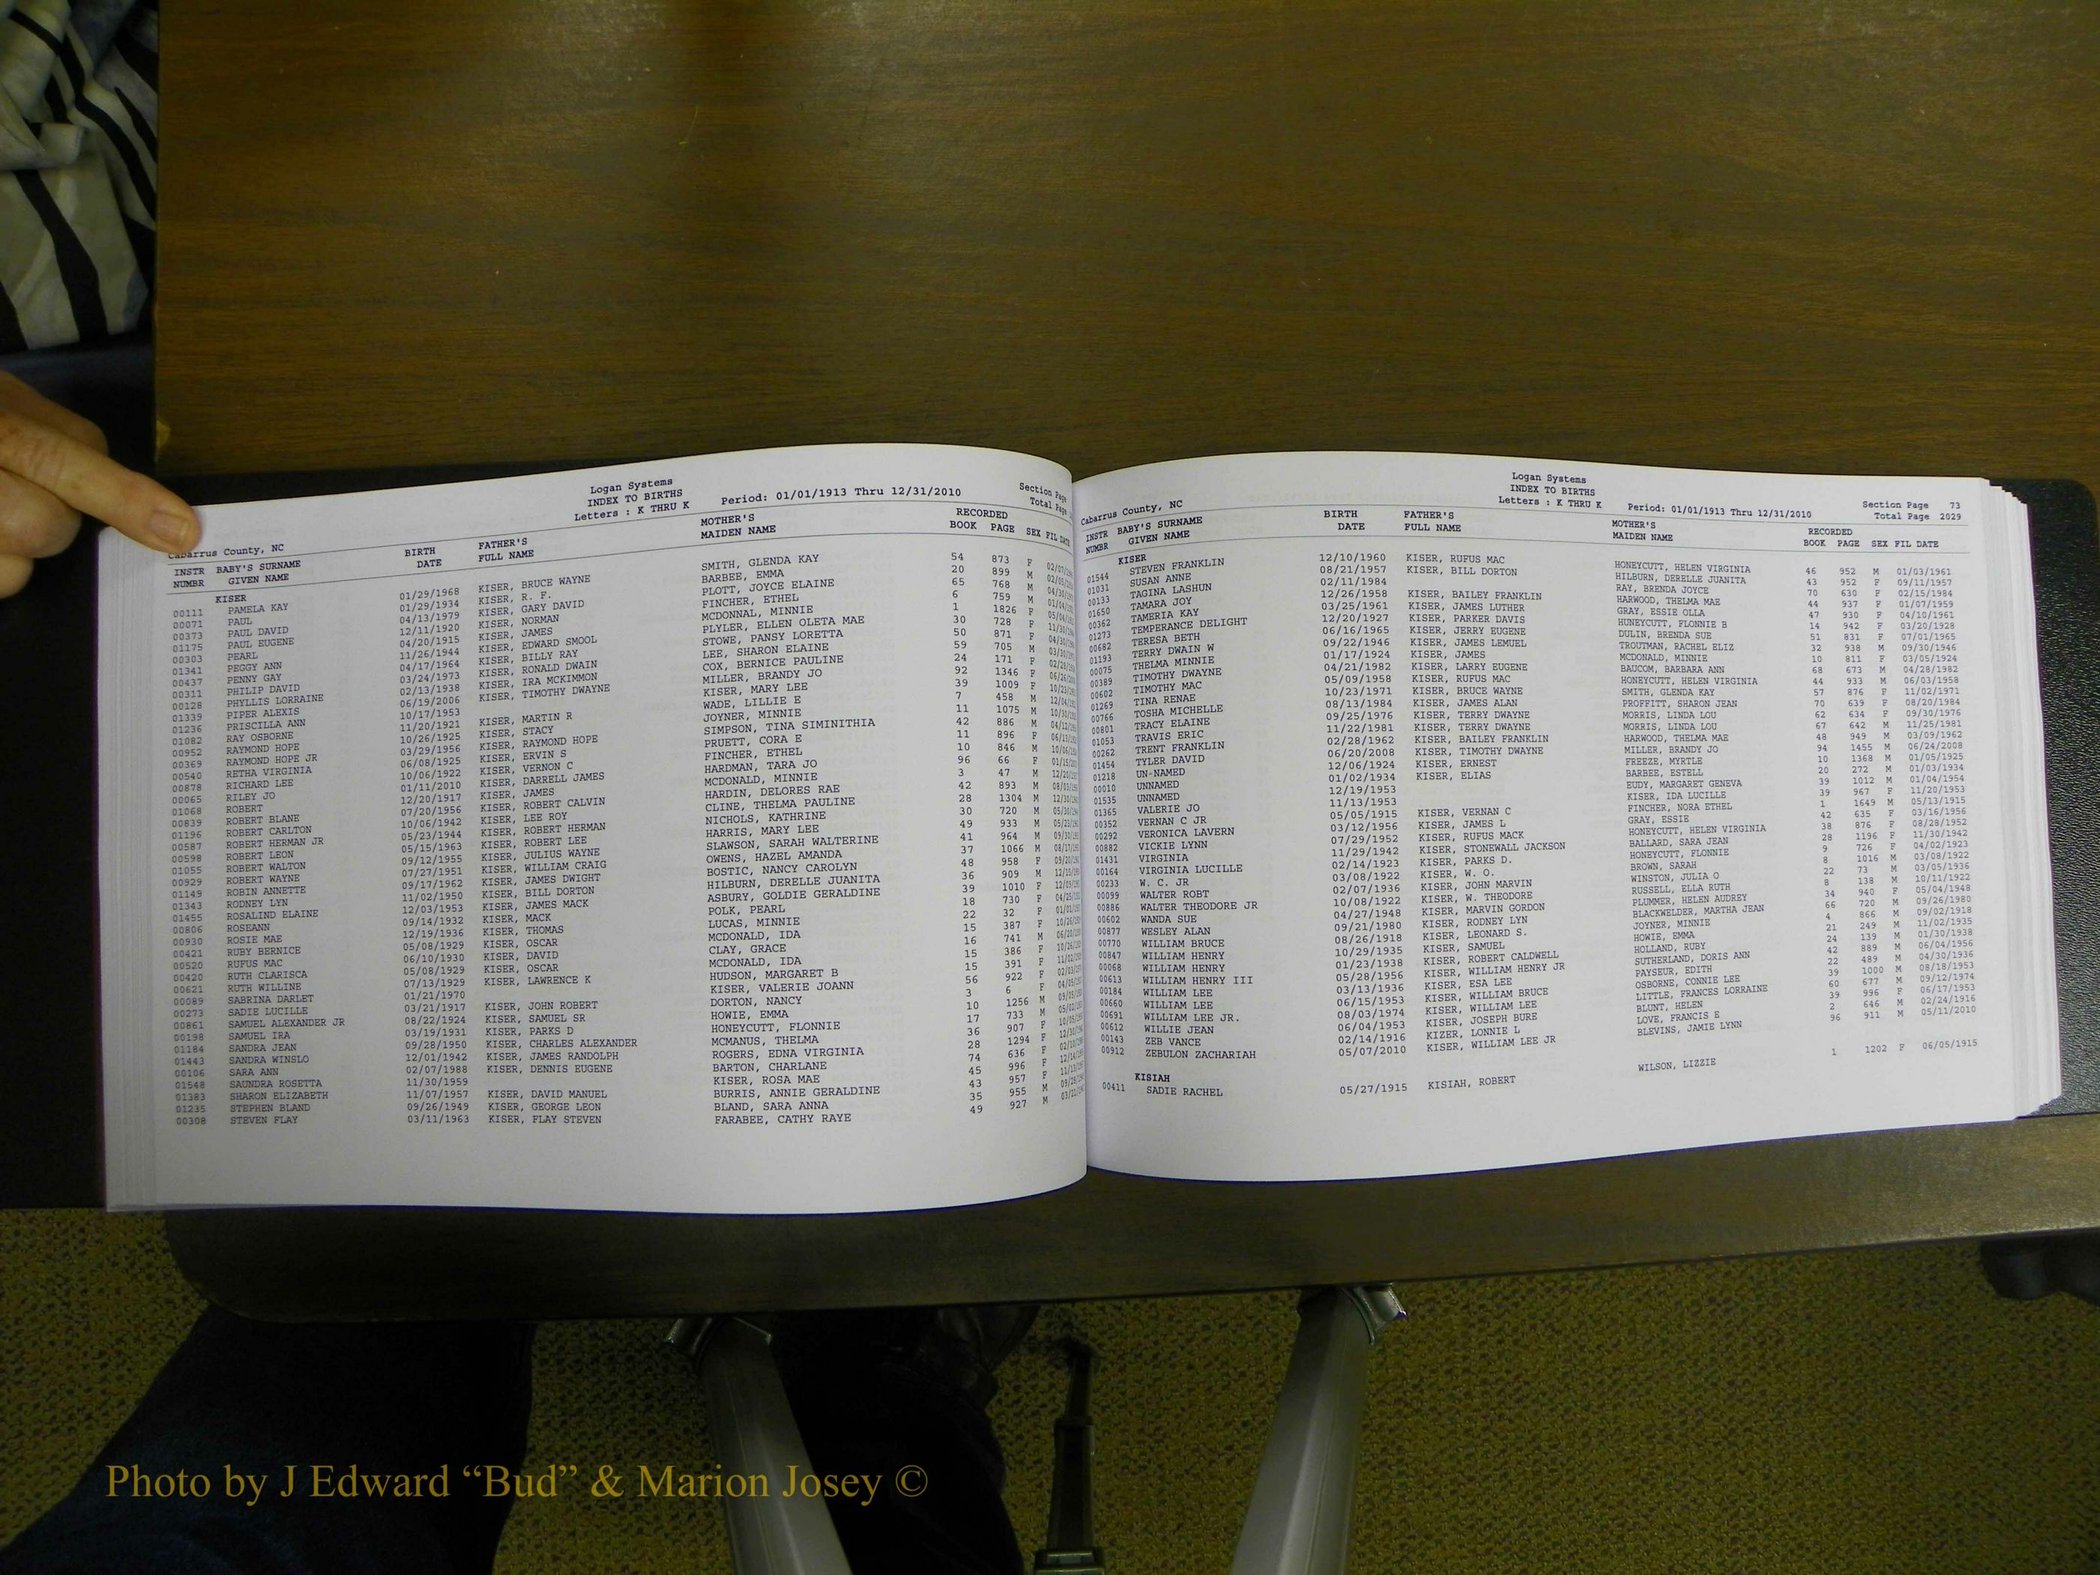 Logan Systems
INDEX TO BIRTHS
Letters : K THRU K Period: 01/01/1913 Thru 12/31/2010 Section Page
Total Page
Cabarrus County, NC
INSTR BABY'S SURNAME BIRTH FATHER'S MOTHER'S RECORDED
NUMBR GIVEN NAME DATE FULL NAME MAIDEN NAME BOOK PAGE SEX FIL DATE
KISER
00111 PAMELA KAY 01/29/1968 KISER, BRUCE WAYNE SMITH, GLENDA KAY 54 873 F
00071 PAUL 01/29/1934 KISER, R. F. BARBEE, EMMA 20 899 M
00373 PAUL DAVID 04/13/1979 KISER, GARY DAVID PLOTT, JOYCE ELAINE 65 768 M
01175 PAUL EUGENE 12/11/1920 KISER, NORMAN FINCHER, ETHEL 6 759 M
00303 PEARL 04/20/1915 KISER, JAMES MCDONNAL, MINNIE 1 1826 F
01341 PEGGY ANN 11/26/1944 KISER, EDWARD SMOOL PLYLER, ELLEN OLETA MAE 30 728 F
00437 PENNY GAY 04/17/1964 KISER, BILLY RAY STOWE, PANSY LORETTA 50 871 F
00311 PHILIP DAVID 03/24/1973 KISER, RONALD DWAIN LEE, SHARON ELAINE 59 705 M
00128 PHYLLIS LORRAINE 02/13/1938 KISER, IRA MCKIMMON COX, BERNICE PAULINE 24 171 F
01339 PIPER ALEXIS 06/19/2006 KISER, TIMOTHY DWAYNE MILLER, BRANDY JO 92 1346 F
01236 PRISCILLA ANN 10/17/1953 KISER, MARY LEE 39 1009 F
01082 RAY OSBORNE 11/20/1921 KISER, MARTIN R WADE, LILLIE E 7 458 M
00952 RAYMOND HOPE 10/26/1925 KISER, STACY JOYNER, MINNIE 11 1075 M
00369 RAYMOND HOPE JR 03/29/1956 KISER, RAYMOND HOPE SIMPSON, TINA SIMINITHIA 42 886 M
00540 RETHA VIRGINIA 06/08/1925 KISER, ERVIN S PRUETT, CORA E 11 896 F
00878 RICHARD LEE 10/06/1922 KISER, VERNON C FINCHER, ETHEL 10 846 M
00065 RILEY JO 01/11/2010 KISER, DARRELL JAMES HARDMAN, TARA JO 96 66 F
01068 ROBERT 12/20/1917 KISER, JAMES MCDONALD, MINNIE 3 47 M
00839 ROBERT BLANE 07/20/1956 KISER, ROBERT CALVIN HARDIN, DELORES RAE 42 893 M
01196 ROBERT CARLTON 10/06/1942 KISER, LEE ROY CLINE, THELMA PAULINE 28 1304 M
00587 ROBERT HERMAN JR 05/23/1944 KISER, ROBERT HERMAN NICHOLS, KATHRINE 30 720 M
00598 ROBERT LEON 05/15/1963 KISER, ROBERT LEE HARRIS, MARY LEE 49 933 M
01055 ROBERT WALTON 09/12/1955 KISER, JULIUS WAYNE SLAWSON, SARAH WALTERINE 41 964 M
00929 ROBERT WAYNE 07/27/1951 KISER, WILLIAM CRAIG OWENS, HAZEL AMANDA 37 1066 M
01149 ROBIN ANNETTE 09/17/1962 KISER, JAMES DWIGHT BOSTIC, NANCY CAROLYN 48 958 F
01343 RODNEY LYN 11/02/1950 KISER, BILL DORTON HILBURN, DERELLE JUANITA 36 909 M
01455 ROSALIND ELAINE 12/03/1953 KISER, JAMES MACK ASBURY, GOLDIE GERALDINE 39 1010 F
00806 ROSEANN 09/14/1932 KISER, MACK POLK, PEARL 18 730 F
00930 ROSIE MAE 12/19/1936 KISER, THOMAS LUCAS, MINNIE 22 32 F
00421 RUBY BERNICE 05/08/1929 KISER, OSCAR MCDONALD, IDA 15 387 F
00520 RUFUS MAC 06/10/1930 KISER, DAVID CLAY, GRACE 16 741 M
00420 RUTH CLARISCA 05/08/1929 KISER, OSCAR MCDONALD, IDA 15 386 F
00621 RUTH WILLINE 07/13/1929 KISER, LAWRENCE K HUDSON, MARGARET B 15 391 F
00089 SABRINA DARLET 01/21/1970 KISER, VALERIE JOANN 56 922 F
00273 SADIE LUCILLE 03/21/1917 KISER, JOHN ROBERT DORTON, NANCY 3 6 F
00861 SAMUEL ALEXANDER JR 08/22/1924 KISER, SAMUEL SR HOWIE, EMMA 10 1256 M
00198 SAMUEL IRA 03/19/1931 KISER, PARKS D HONEYCUTT, FLONNIE 17 733 M
01184 SANDRA JEAN 09/28/1950 KISER, CHARLES ALEXANDER MCMANUS, THELMA 36 907 F
01443 SANDRA WINSLO 12/01/1942 KISER, JAMES RANDOLPH ROGERS, EDNA VIRGINIA 28 1294 F
00106 SARA ANN 02/07/1988 KISER, DENNIS EUGENE BARTON, CHARLANE 74 636 F
01548 SAUNDRA ROSETTA 11/30/1959 KISER, ROSA MAE 45 996 F
01383 SHARON ELIZABETH 11/07/1957 KISER, DAVID MANUEL BURRIS, ANNIE GERALDINE 43 957 F
01235 STEPHEN BLAND 09/26/1949 KISER, GEORGE LEON BLAND, SARA ANNA 35 955 M
00308 STEVEN FLAY 03/11/1963 KISER, FLAY STEVEN FARABEE, CATHY RAYE 49 927 M
Logan Systems
INDEX TO BIRTHS
Letters : K THRU K Period: 01/01/1913 Thru 12/31/2010 Section Page 73
Total Page 2029
Cabarrus County, NC
INSTR BABY'S SURNAME BIRTH FATHER'S MOTHER'S RECORDED
NUMBR GIVEN NAME DATE FULL NAME MAIDEN NAME BOOK PAGE SEX FIL DATE
KISER
01544 STEVEN FRANKLIN 12/10/1960 KISER, RUFUS MAC HONEYCUTT, HELEN VIRGINIA 46 952 M 01/03/1961
01031 SUSAN ANNE 08/21/1957 KISER, BILL DORTON HILBURN, DERELLE JUANITA 43 952 F 09/11/1957
00133 TAGINA LASHUN 02/11/1984 RAY, BRENDA JOYCE 70 630 F 02/15/1984
01650 TAMARA JOY 12/26/1958 KISER, BAILEY FRANKLIN HARWOOD, THELMA MAE 44 937 F 01/07/1959
00362 TAMERIA KAY 03/25/1961 KISER, JAMES LUTHER GRAY, ESSIE OLLA 47 930 F 04/10/1961
01273 TEMPERANCE DELIGHT 12/20/1927 KISER, PARKER DAVIS HUNEYCUTT, FLONNIE B 14 942 F 03/20/1928
00682 TERESA BETH 06/16/1965 KISER, JERRY EUGENE DULIN, BRENDA SUE 51 831 F 07/01/1965
01193 TERRY DWAIN W 09/22/1946 KISER, JAMES LEMUEL TROUTMAN, RACHEL ELIZ 32 938 M 09/30/1946
00075 THELMA MINNIE 01/17/1924 KISER, JAMES MCDONALD, MINNIE 10 811 F 03/05/1924
00389 TIMOTHY DWAYNE 04/21/1982 KISER, LARRY EUGENE BAUCOM, BARBARA ANN 68 673 M 04/28/1982
00602 TIMOTHY MAC 05/09/1958 KISER, RUFUS MAC HONEYCUTT, HELEN VIRGINIA 44 933 M 06/03/1958
01269 TINA RENAE 10/23/1971 KISER, BRUCE WAYNE SMITH, GLENDA KAY 57 876 F 11/02/1971
00766 TOSHA MICHELLE 08/13/1984 KISER, JAMES ALAN PROFFITT, SHARON JEAN 70 639 F 08/20/1984
00801 TRACY ELAINE 09/25/1976 KISER, TERRY DWAYNE MORRIS, LINDA LOU 62 634 F 09/30/1976
01053 TRAVIS ERIC 11/22/1981 KISER, TERRY DWAYNE MORRIS, LINDA LOU 67 642 M 11/25/1981
00262 TRENT FRANKLIN 02/28/1962 KISER, BAILEY FRANKLIN HARWOOD, THELMA MAE 48 949 M 03/09/1962
01454 TYLER DAVID 06/20/2008 KISER, TIMOTHY DWAYNE MILLER, BRANDY JO 94 1455 M 06/24/2008
01218 UN-NAMED 12/06/1924 KISER, ERNEST FREEZE, MYRTLE 10 1368 M 01/05/1925
00010 UNNAMED 01/02/1934 KISER, ELIAS BARBEE, ESTELL 20 272 M 01/03/1934
01535 UNNAMED 12/19/1953 EUDY, MARGARET GENEVA 39 1012 M 01/04/1954
01365 VALERIE JO 11/13/1953 KISER, IDA LUCILLE 39 967 F 11/20/1953
00352 VERNAN C JR 05/05/1915 KISER, VERNAN C FINCHER, NORA ETHEL 1 1649 M 05/13/1915
00292 VERONICA LAVERN 03/12/1956 KISER, JAMES L GRAY, ESSIE 42 635 F 03/16/1956
00882 VICKIE LYNN 07/29/1952 KISER, RUFUS MACK HONEYCUTT, HELEN VIRGINIA 38 876 F 08/28/1952
01431 VIRGINIA 11/29/1942 KISER, STONEWALL JACKSON BALLARD, SARA JEAN 28 1196 F 11/30/1942
00164 VIRGINIA LUCILLE 02/14/1923 KISER, PARKS D. HONEYCUTT, FLONNIE 9 726 F 04/02/1923
00233 W. C. JR 03/08/1922 KISER, W. O. BROWN, SARAH 8 1016 M 03/08/1922
00099 WALTER ROBT 02/07/1936 KISER, JOHN MARVIN WINSTON, JULIA O 22 73 M 03/05/1936
00886 WALTER THEODORE JR 10/08/1922 KISER, W. THEODORE RUSSELL, ELLA RUTH 8 138 M 10/11/1922
00602 WANDA SUE 04/27/1948 KISER, MARVIN GORDON PLUMMER, HELEN AUDREY 34 940 F 05/04/1948
00877 WESLEY ALAN 09/21/1980 KISER, RODNEY LYN BLACKWELDER, MARTHA JEAN 66 720 M 09/26/1980
00770 WILLIAM BRUCE 08/26/1918 KISER, LEONARD S. JOYNER, MINNIE 4 866 M 09/02/1918
00847 WILLIAM HENRY 10/29/1935 KISER, SAMUEL HOWIE, EMMA 21 249 M 11/02/1935
00068 WILLIAM HENRY 01/23/1938 KISER, ROBERT CALDWELL HOLLAND, RUBY 24 139 M 01/30/1938
00613 WILLIAM HENRY III 05/28/1956 KISER, WILLIAM HENRY JR SUTHERLAND, DORIS ANN 42 889 M 06/04/1956
00184 WILLIAM LEE 03/13/1936 KISER, ESA LEE PAYSEUR, EDITH 22 489 M 04/30/1936
00660 WILLIAM LEE 06/15/1953 KISER, WILLIAM BRUCE OSBORNE, CONNIE LEE 39 1000 M 08/18/1953
00691 WILLIAM LEE JR. 08/03/1974 KISER, WILLIAM LEE LITTLE, FRANCES LORRAINE 60 677 M 09/12/1974
00612 WILLIE JEAN 06/04/1953 KISER, JOSEPH BURE BLUNT, HELEN 39 996 F 06/17/1953
00143 ZEB VANCE 02/14/1916 KIZER, LONNIE L LOVE, FRANCIS E 2 646 M 02/24/1916
00912 ZEBULON ZACHARIAH 05/07/2010 KISER, WILLIAM LEE JR BLEVINS, JAMIE LYNN 96 911 M 05/11/2010
KISIAH
00411 SADIE RACHEL 05/27/1915 KISIAH, ROBERT WILSON, LIZZIE 1 1202 F 06/05/1915
Photo by J Edward “Bud” & Marion Josey ©